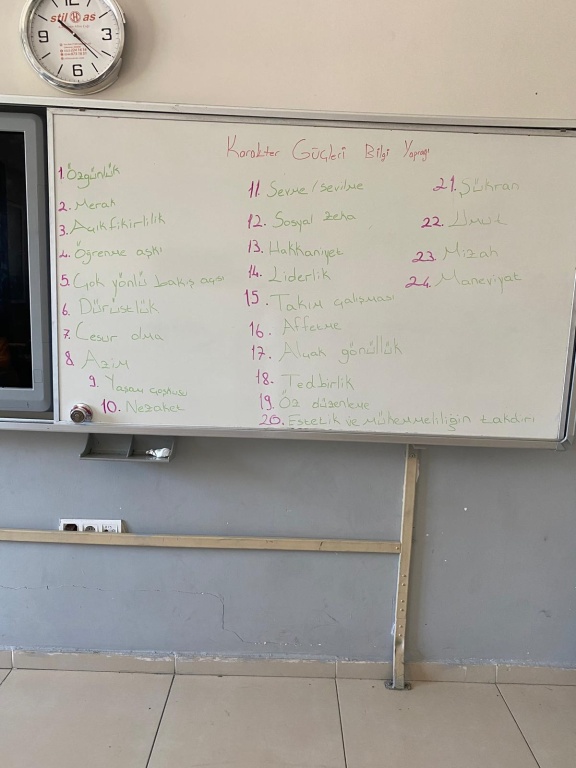 stil as
12
3
6
9
Karakter Güçleri Bilgi Yaprağı
1. Özgünlük
2. Merak
3. Açıkfikirlilik
4. Öğrenme aşkı
5. Çok yönlü bakış açısı
6. Dürüstlük
7. Cesur olma
8. Azim
9. Yaşam coşkusu
10. Nezaket
11. Sevme/sevilme
12. Sosyal zeka
13. Hakkaniyet
14. Liderlik
15. Takım çalışması
16. Affetme
17. Alçak gönüllük
18. Tedbirlik
19. Öz düzenleme
20. Estetik ve mükemmelliğin takdiri
21. Şükran
22. Umut
23. Mizah
24. Maneviyat